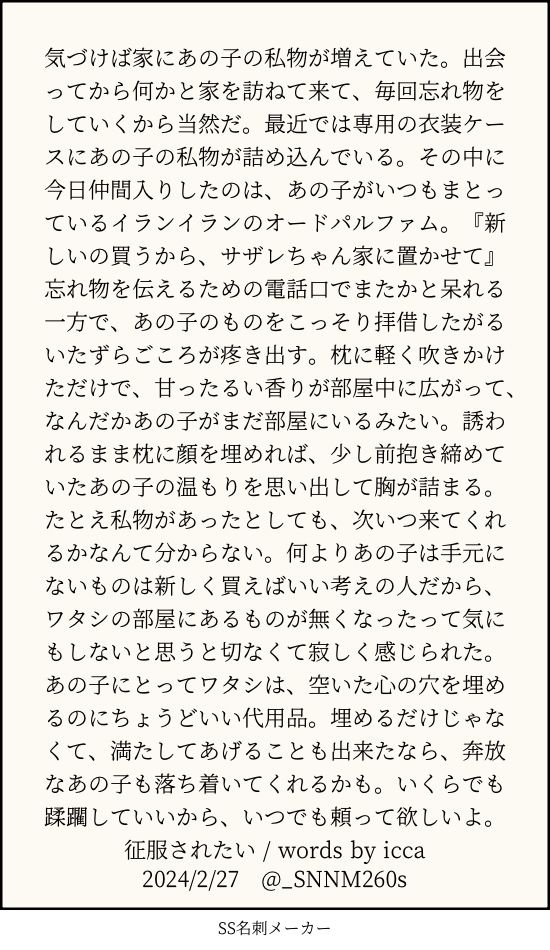 気づけば家にあの子の私物が増えていた。出会
ってから何かと家を訪ねて来て、毎回忘れ物を
していくから当然だ。最近では専用の衣装ケー
スにあの子の私物が詰め込んでいる。その中に
今日仲間入りしたのは、あの子がいつもまとっ
ているイランイランのオードパルファム。『新
しいの買うから、サザレちゃん家に置かせて』
忘れ物を伝えるための電話口でまたかと呆れる
一方で、あの子のものをこっそり拝借したがる
いたずらごころが疼き出す。枕に軽く吹きかけ
ただけで、甘ったるい香りが部屋中に広がって、
なんだかあの子がまだ部屋にいるみたい。誘わ
れるまま枕に顔を埋めれば、少し前抱き締めて
いたあの子の温もりを思い出して胸が詰まる。
たとえ私物があったとしても、次いつ来てくれ
るかなんて分からない。何よりあの子は手元に
ないものは新しく買えばいい考えの人だから、
ワタシの部屋にあるものが無くなったって気に
もしないと思うと切なくて寂しく感じられた。
あの子にとってワタシは、空いた心の穴を埋め
るのにちょうどいい代用品。埋めるだけじゃな
くて、満たしてあげることも出来たなら、奔放
なあの子も落ち着いてくれるかも。いくらでも
蹂躙していいから、いつでも頼って欲しいよ。
征服されたい / words by icca
2024/2/27　@_SNNM260s
SS名刺メーカー